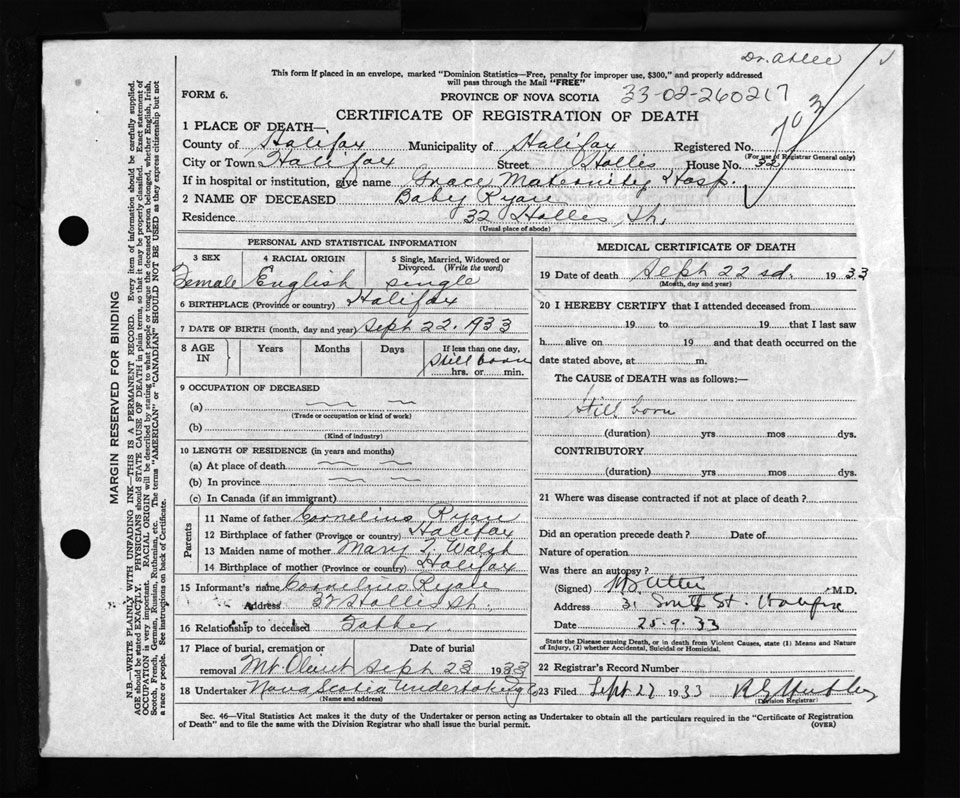 Dr. Atlee
This form if placed in an envelope, marked "Dominion Statistics—Free, penalty for improper use, $300," and properly addressed
will pass through the Mail "FREE"
FORM 6.
PROVINCE OF NOVA SCOTIA
33-02-260217
CERTIFICATE OF REGISTRATION OF DEATH
703
1 PLACE OF DEATH—
County of Halifax Municipality of Halifax Registered No.
(For use of Registrar General only)
City or Town Halifax Street Hollis House No. 32
If in hospital or institution, give name Grace Maternity Hosp.
2 NAME OF DECEASED Baby Ryan
Residence 32 Hollis St.
(Usual place of abode)
PERSONAL AND STATISTICAL INFORMATION
3 SEX 4 RACIAL ORIGIN 5 Single, Married, Widowed or Divorced. (Write the word)
Female English single
6 BIRTHPLACE (Province or country) Halifax
7 DATE OF BIRTH (month, day and year) Sept 22. 1933
8 AGE IN Years Months Days If less than one day,
Still born
hrs. or min.
9 OCCUPATION OF DECEASED
(a)
(Trade or occupation or kind of work)
(b)
(Kind of industry)
10 LENGTH OF RESIDENCE (in years and months)
(a) At place of death
(b) In province
(c) In Canada (if an immigrant)
Parents
11 Name of father Cornelius Ryan
12 Birthplace of father (Province or country) Halifax
13 Maiden name of mother Mary L. Walsh
14 Birthplace of mother (Province or country) Halifax
15 Informant's name Cornelius Ryan
Address 32 Hollis St.
16 Relationship to deceased Father
17 Place of burial, cremation or removal Date of burial
Mt. Olivet Sept 23 1933
18 Undertaker Nova Scotia Undertaking Co
(Name and address)
MEDICAL CERTIFICATE OF DEATH
19 Date of death Sept 22 nd. 1933
(Month, day and year)
20 I HEREBY CERTIFY that I attended deceased from
19 to 19 that I last saw
h alive on 19 and that death occurred on the
date stated above, at m.
The CAUSE OF DEATH was as follows:—
Still born
(duration) yrs mos dys.
CONTRIBUTORY
(duration) yrs mos dys.
21 Where was disease contracted if not at place of death?
Did an operation precede death? Date of
Nature of operation
Was there an autopsy?
(Signed) M.D.
Address 31 South St. Halifax
Date 25-9-33
State the Disease causing Death, or in death from Violent Causes, state (1) Means and Nature
of Injury, (2) whether Accidental, Suicidal or Homicidal.
22 Registrar's Record Number
23 Filed Sept 27 1933
(Division Registrar)
Sec. 46—Vital Statistics Act makes it the duty of the Undertaker or person acting as Undertaker to obtain all the particulars required in the "Certificate of Registration
of Death" and to file the same with the Division Registrar who shall issue the burial permit.
(OVER)
MARGIN RESERVED FOR BINDING
N.B.—WRITE PLAINLY WITH UNFADING INK—THIS IS A PERMANENT RECORD. Every item of information should be carefully supplied.
AGE should be stated EXACTLY. PHYSICIANS should STATE CAUSE OF DEATH in plain terms, so that it may be properly classified. Exact statement of
OCCUPATION is very important. RACIAL ORIGIN will be described by stating to what people or tongue the deceased person belonged, whether English, Irish,
Scotch, French, German, Russian, Ruthenian, etc. The terms "AMERICAN" or "CANADIAN" SHOULD NOT BE USED as they express citizenship but not
a race or people. See instructions on back of Certificate.